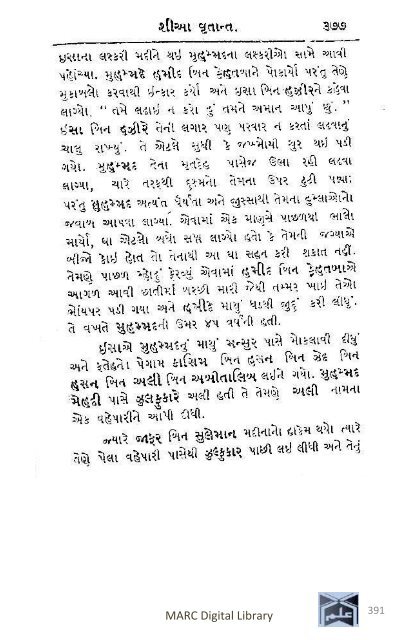 શીઆ વૃતાન્ત. ૩૭૭
ઇસાના લશ્કરી મદીને થઇ મુહમ્મદના લશ્કરીઓ સામે આવી
પહોંચ્યા. મુહમ્મદે હુમીદ બિન કેહતબાને પોકાર્યો પરંતુ તેણે
મુકાબલો કરવાથી ઇન્કાર કર્યો અને ઇસા બિન હઝીરને કહેવા
લાગ્યો. " તમે લઢાઇ ન કરો હું તમને અમાન આપું છું. "
ઇસા બિન હઝીરે તેની લગાર પણ પરવાર ન કરતાં લડવાનું
ચાલુ રાખ્યું. તે એટલે સુધી કે જખ્મોથી ચુર થઇ પડી
ગયો. મુહમ્મદ તેના મૃતદેહ પાસેજ ઉભા રહી લઢવા
લાગ્યા, ચારે તરફથી દુશ્મનો તેમના ઉપર ટુટી પડ્યા;
પરંતુ મુહમ્મદ અત્યંત ધૈર્યતા અને જીસ્સાથી તેમના હુમ્લાઓનો
જવાબ આપવા લાગ્યા. એવામાં એક માણસે પાછળથી ભાલો
માર્યો, ઘા એટલો બધો સખ્ત લાગ્યો હતો કે તેમની જગ્યાએ
બીજો કોઇ હોત તો તેનાથી આ ઘા સહન કરી શકાત નહીં.
તેમણે પાછળ મ્હોઢું ફેરવ્યું એવામાં હુમીદ બિન કેહતબાએ
આગળ આવી છાતીમાં બરછી મારી જેથી તમ્મર ખાઇ તેઓ
ભોંયપર પડી ગયા અને હુમીદે માથું ધડથી જુદું કરી લીધું.
તે વખતે મુહમ્મદની ઉમર ૪૫ વર્ષની હતી.
ઇસાએ મુહમ્મદનું માથું મન્સુર પાસે મોકલાવી દીધું
અને ફતેહનો પેગામ કાસિમ બિન હસન બિન ઝેદ બિન
હસન બિન અલી બિન અબીતાલિબ લઇને ગયો. મુહમ્મદ
મેહદી પાસે ઝુલફુકારે અલી હતી તે તેમણે અલી નામના
એક વહેપારીને આપી દીધી.
જ્યારે જાફર બિન સુલેમાન મદીનાનો હાકેમ થયો ત્યારે
તેણે પેલા વહેપારી પાસેથી ઝુલફુકાર પાછી લઇ લીધી અને તેનું
علم
MARC Digital Library 391